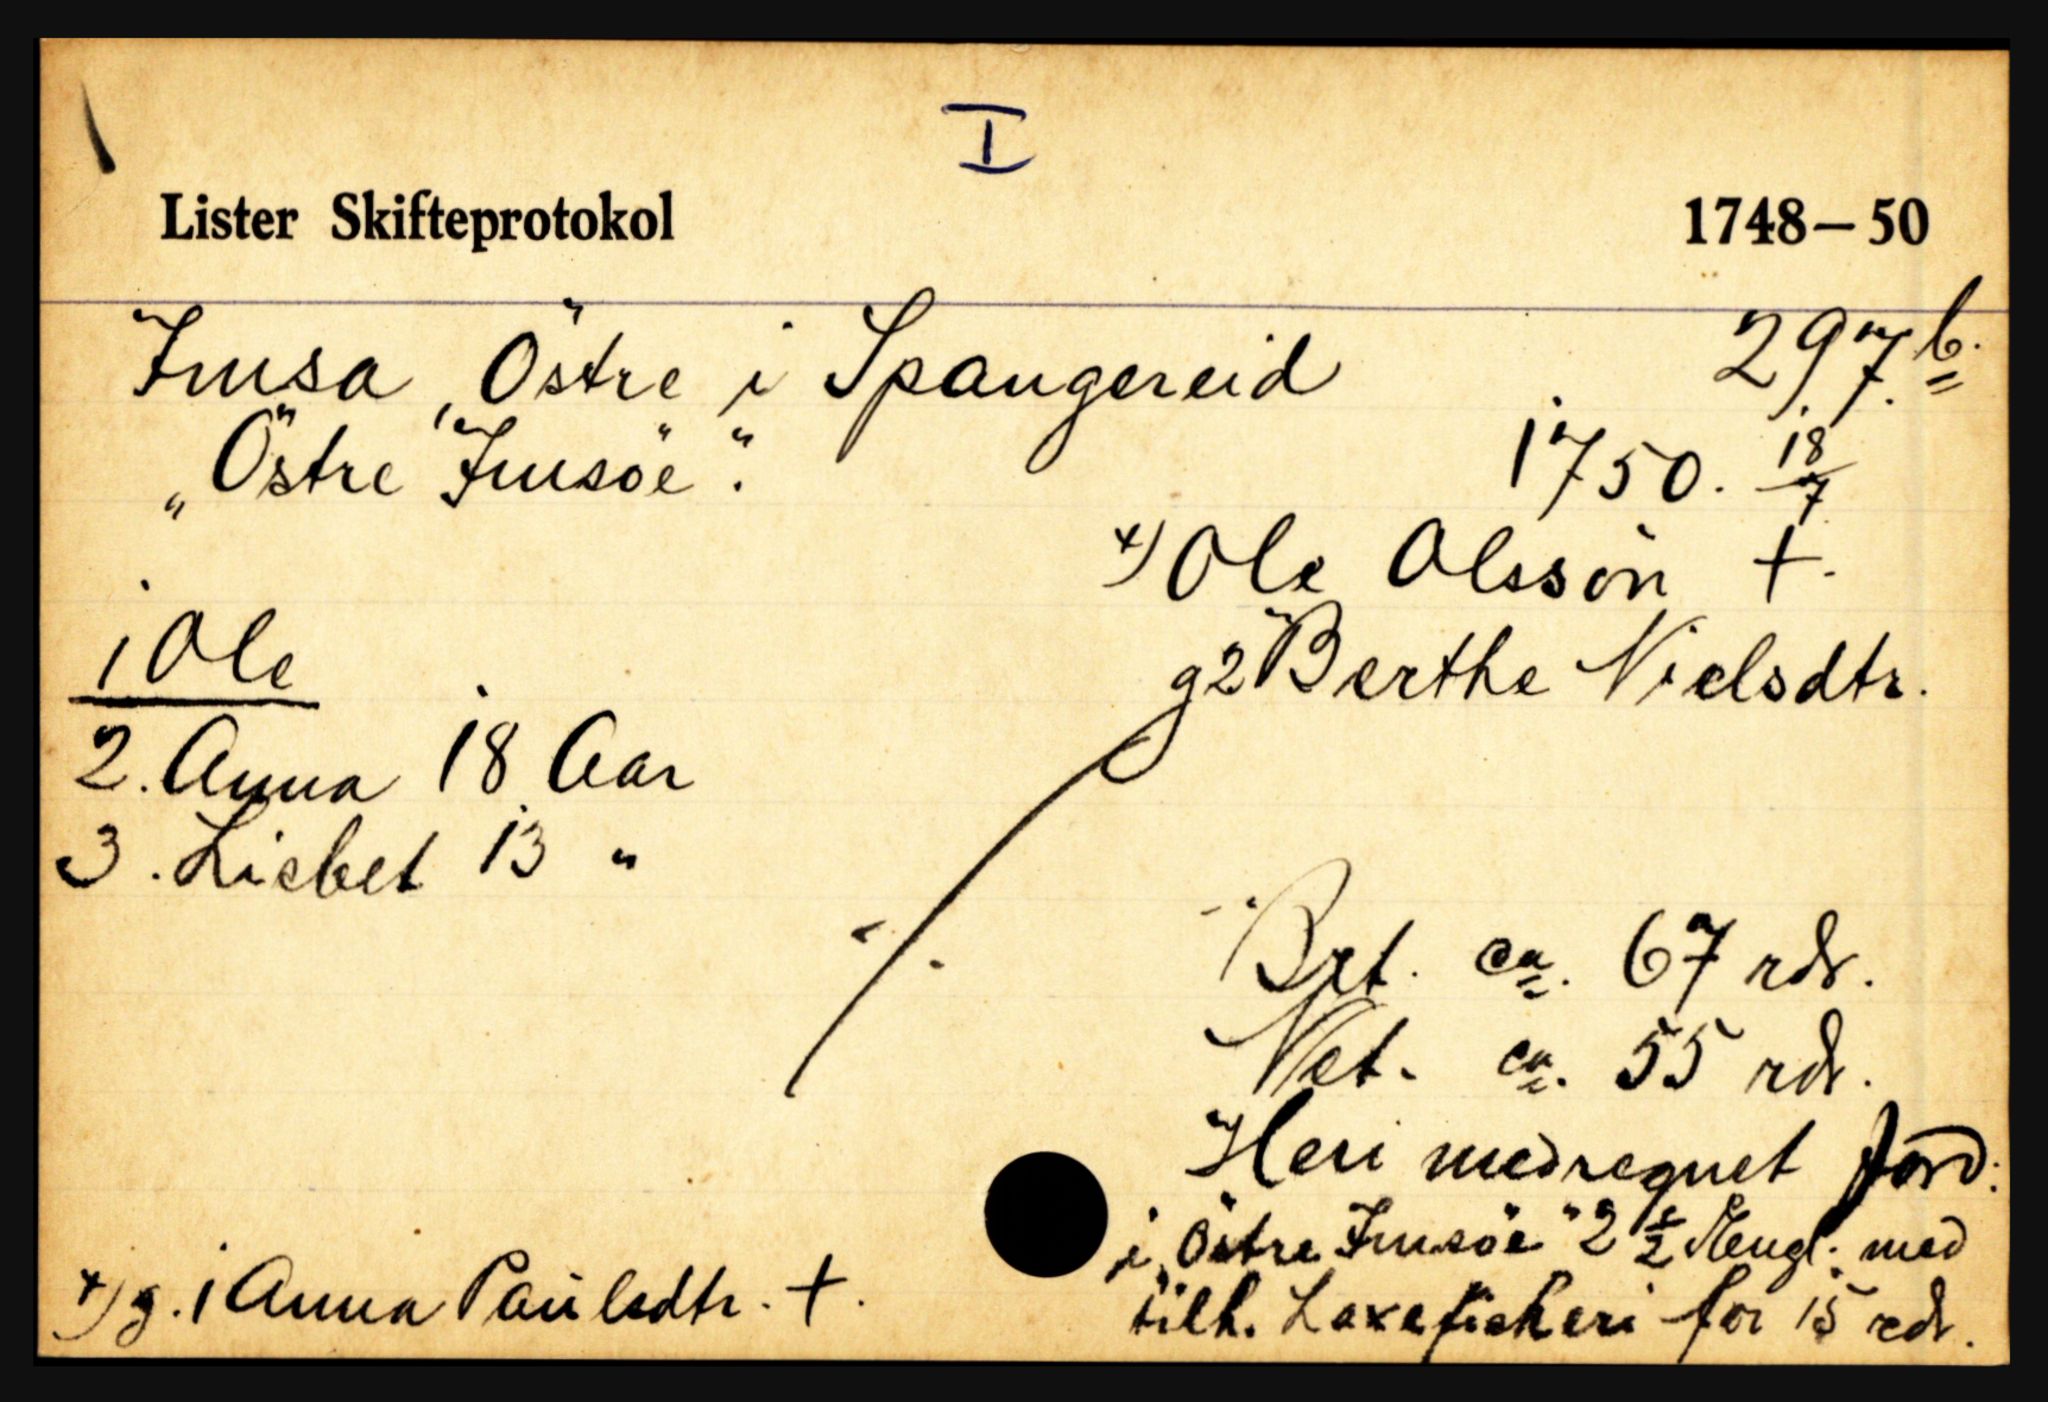 I
Lister Skifteprotokol 1748–50
Imsa, Östre i Spangereid 297 b.
„Östre Imsöe".
1750. 18/7
x) Ole Olssön +.
g2 Berthe Nielsdtr.
1 Ole
2. Anna 18 Aar
3. Lisbet 13 "
Brt. ca. 67 rdr.
Net. ca. 55 rdr.
Heri medregnet Jord:
i „Östre Imsöe" 2 1/2 Engl. med
tilh. Laxefiskeri for 15 rdr.
x) g. 1 Anna Paulsdtr. +.